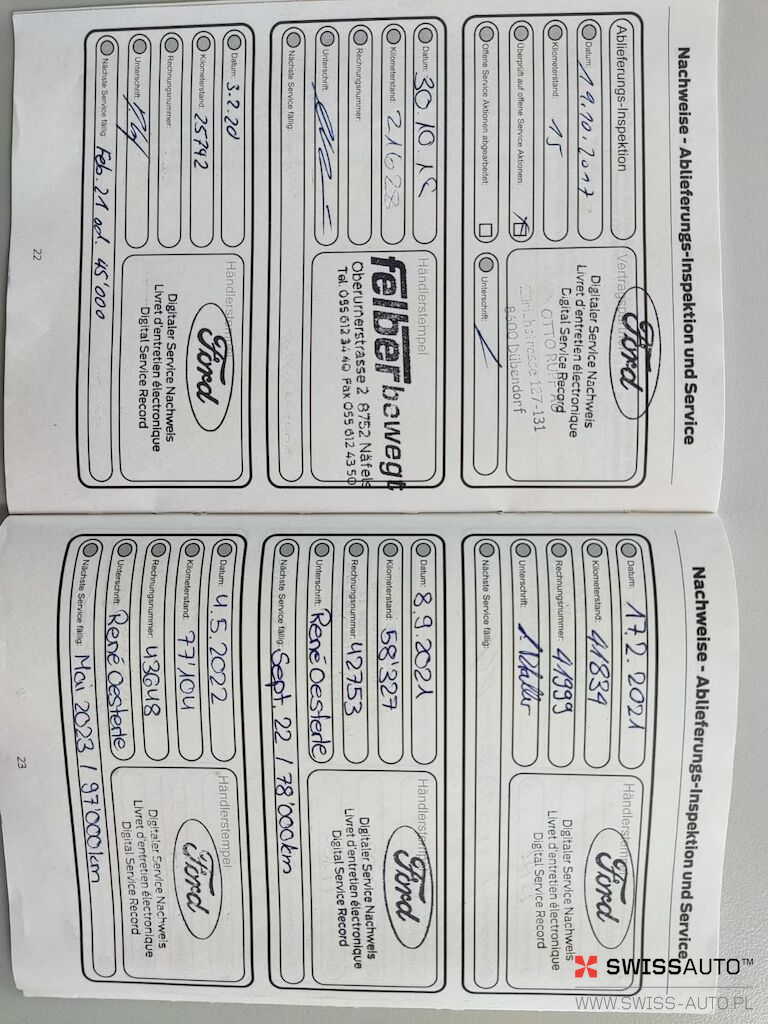 Nachweise - Ablieferungs-Inspektion und Service
Ablieferungs-Inspektion
Datum: 19.10.2017
Kilometerstand: 15
Überprüft auf offene Service Aktionen:
Offene Service Aktionen abgearbeitet:
Ford
Digitaler Service Nachweis
Livret d'entretien électronique
Digital Service Record
8600 Dübendorf
Unterschrift:
Datum: 30.10.18
Kilometerstand: 21628
Rechnungsnummer:
Unterschrift:
Nächste Service fällig:
Händlerstempel
felberbewegt
Oberurnerstrasse 2 8752 Näfels
Tel. 055 612 34 40 Fax 055 612 43 50
Datum: 3.2.20
Kilometerstand: 25792
Rechnungsnummer:
Unterschrift:
Nächste Service fällig: Feb. 21 od. 45'000
Händlerstempel
Ford
Digitaler Service Nachweis
Livret d'entretien électronique
Digital Service Record
22
Nachweise - Ablieferungs-Inspektion und Service
Datum: 17.2.2021
Kilometerstand: 41834
Rechnungsnummer: 41999
Unterschrift:
Nächste Service fällig:
Händlerstempel
Ford
Digitaler Service Nachweis
Livret d'entretien électronique
Digital Service Record
Datum: 8.9.2021
Kilometerstand: 58'327
Rechnungsnummer: 42753
Unterschrift: René Oesterle
Nächste Service fällig: Sept. 22 / 78'000km
Händlerstempel
Ford
Digitaler Service Nachweis
Livret d'entretien électronique
Digital Service Record
Datum: 4.5.2022
Kilometerstand: 77'104
Rechnungsnummer: 43648
Unterschrift: René Oesterle
Nächste Service fällig: Mai 2023 / 97'000km
Händlerstempel
Ford
Digitaler Service Nachweis
Livret d'entretien électronique
Digital Service Record
23
SWISSAUTO™
WWW.SWISS-AUTO.PL